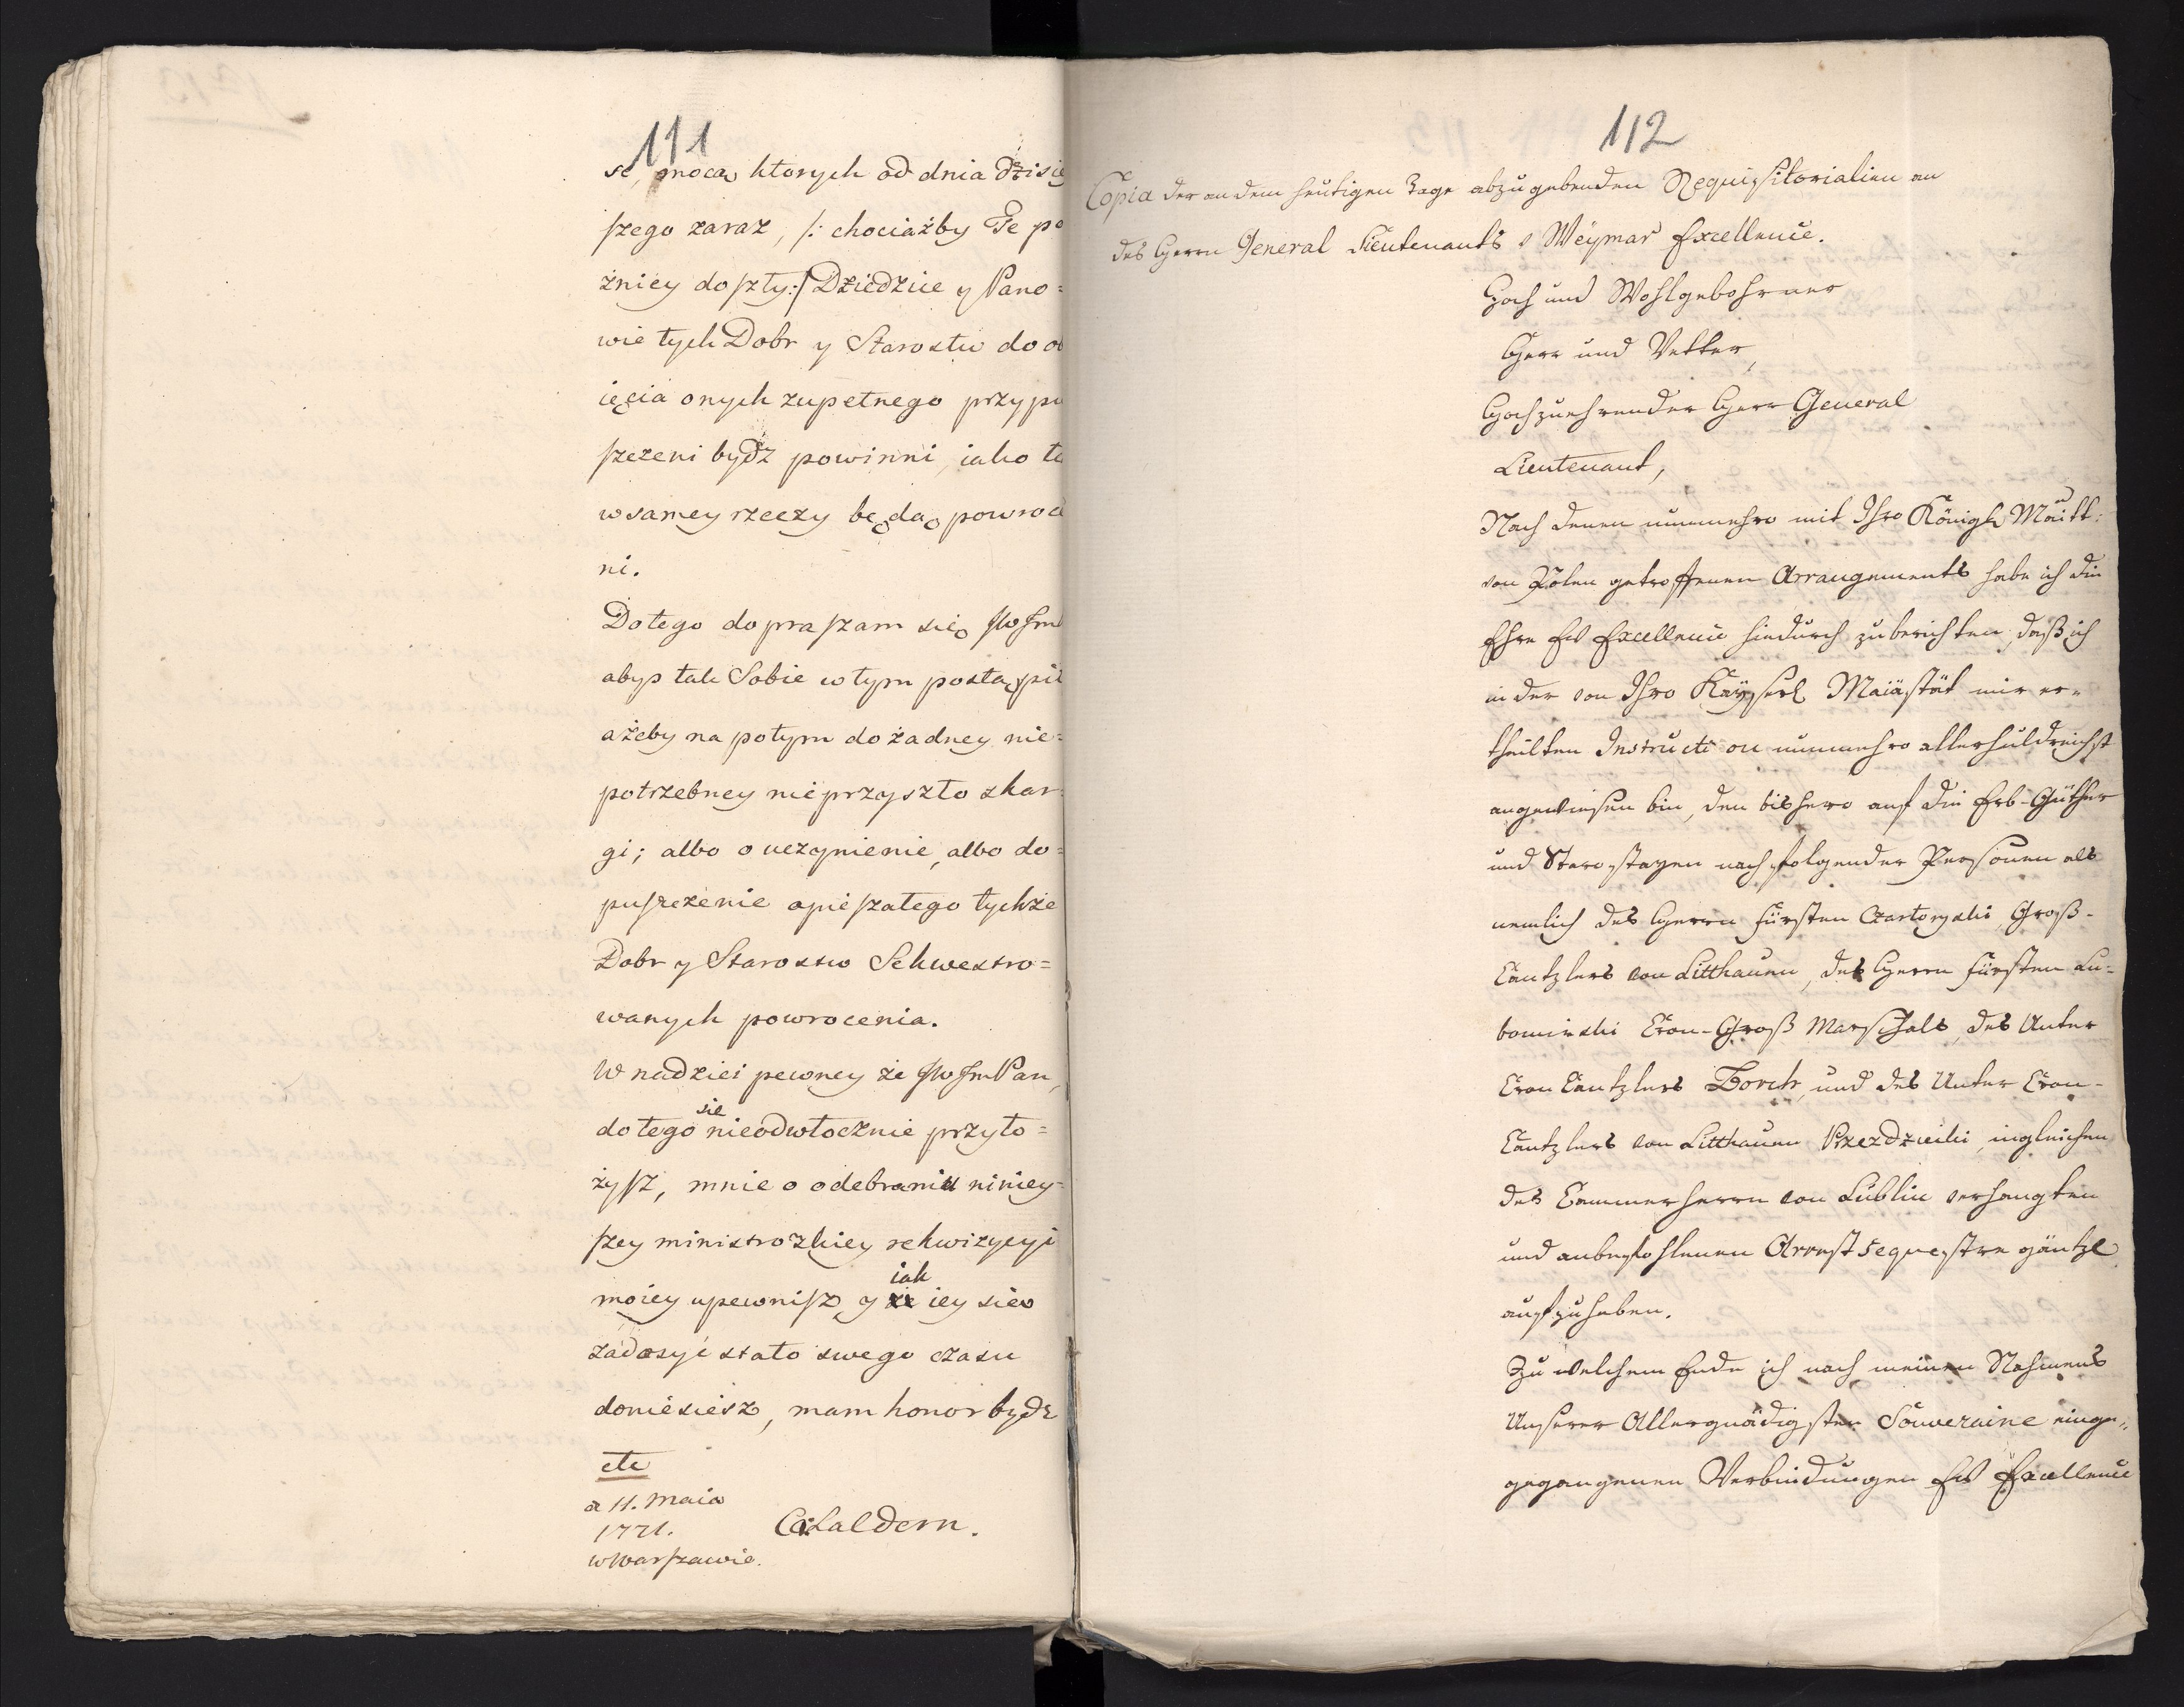 111
se, mocą ktorych od dnia dzisie
szego zaraz, /: chociażby Te po
żniey doszły:/ Dziedzice y Pano=
wie tych Dobr y Starostw do ob
ięcia onych zupełnego przypu
szczeni bydź powinni, iako te
w samey rzeczy będą powroc
ni.
Do tego dopraszam się JWJm
abyś tak Sobie w tym postąpił
ażeby na potym do żadney nie=
potrzebney nie przyszło skar=
gi; albo o uczynienie, albo do=
puszczenie opieszałego tychże
Dobr y Starostw Sekwestro=
wanych powrocenia.
W nadziei pewney że JWJmPan,
do tego się nieodwłocznie przyło=
żysz, mnie o odebraniu niniey=
szey ministrozkiey rekwizycyi
moiey upewnisz, y iak iey się
zadosyć stało swego czasu
doniesiesz, mam honor bydź
etc
a 11. Maia
1771.
CaLaldern.
w Warszawie.
112
Copia der an dem heutigen Tage abzugebenden Requisitorialien an
des Herrn General Lieutenants v Weymar Excellence.
Hoch und Wohlgebohrner
Herr und Vetter,
Hochzuehrender Herr General
Lieutenant,
Nach denen nunmehro mit Ihro Königl Maitt:
von Pohlen getroffenen Arrangements habe ich die
Ehre Ew Excellence hiedurch zu berichten, daß ich
in der von Ihro Kayserl Maiästät mir er=
theilten Instruction nunmehro allerhuldreichst
angewiesen bin, den bishero auf die Erb-Güther
und Starostayen nachfolgender Personen als
nemlich des Herrn Fürsten Czartoryski, Groß-
Cantzlers von Litthauen, des Herrn Fürsten Lu=
bomirski Cron-Groß Marschals, des Unter
Cron Cantzlers Borch, und des Unter Cron-
Cantzlers von Litthauen Przezdziecki, ingleichen
des Cammerherrn von Lublin verhängten
und anbefohlenen Arrest Sequestre gäntzl
aufzuheben.
Zu welchem Ende ich nach meinen Nahmens
Unserer Allergnädigsten Souveraine einge=
gegangenen Verbindungen Ew Excellence